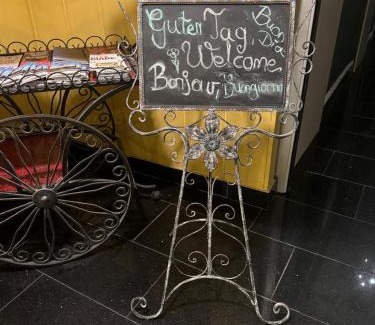 Guten Tag,
Buon
Dia
& Welcome
Bonjour, Buongiorno